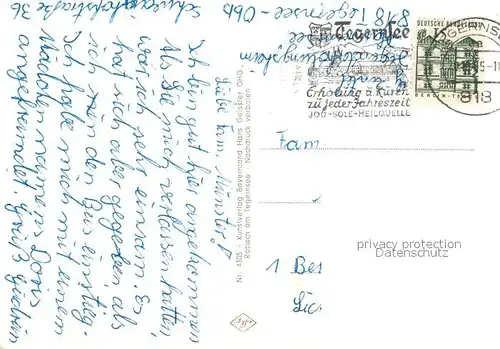 818 Tegernsee - Obb
Schwaighofstraße 36
Liebe Fam. Münster!
Ich bin gut hier angekommen
Als Sie mich verlassen hatten,
war ich sehr einsam. Es
hat sich aber gegeben, als
ich in den Bus einstieg.
Ich habe mich mit einem
Mädchen namens Doris
angefreundet. Gruß Gudrun
Nr. 4505 - Kunstverlag Bayernland Hans Geissler OHG.
Rottach am Tegernsee - Nachdruck verboten
Tegernsee
Erholung u. Kuren
zu jeder Jahreszeit
JOD-SOLE-HEILQUELLE
DEUTSCHE BUNDESPOST
15
TEGERNS
818
Fam.
1 Bes
privacy protection
Datenschutz